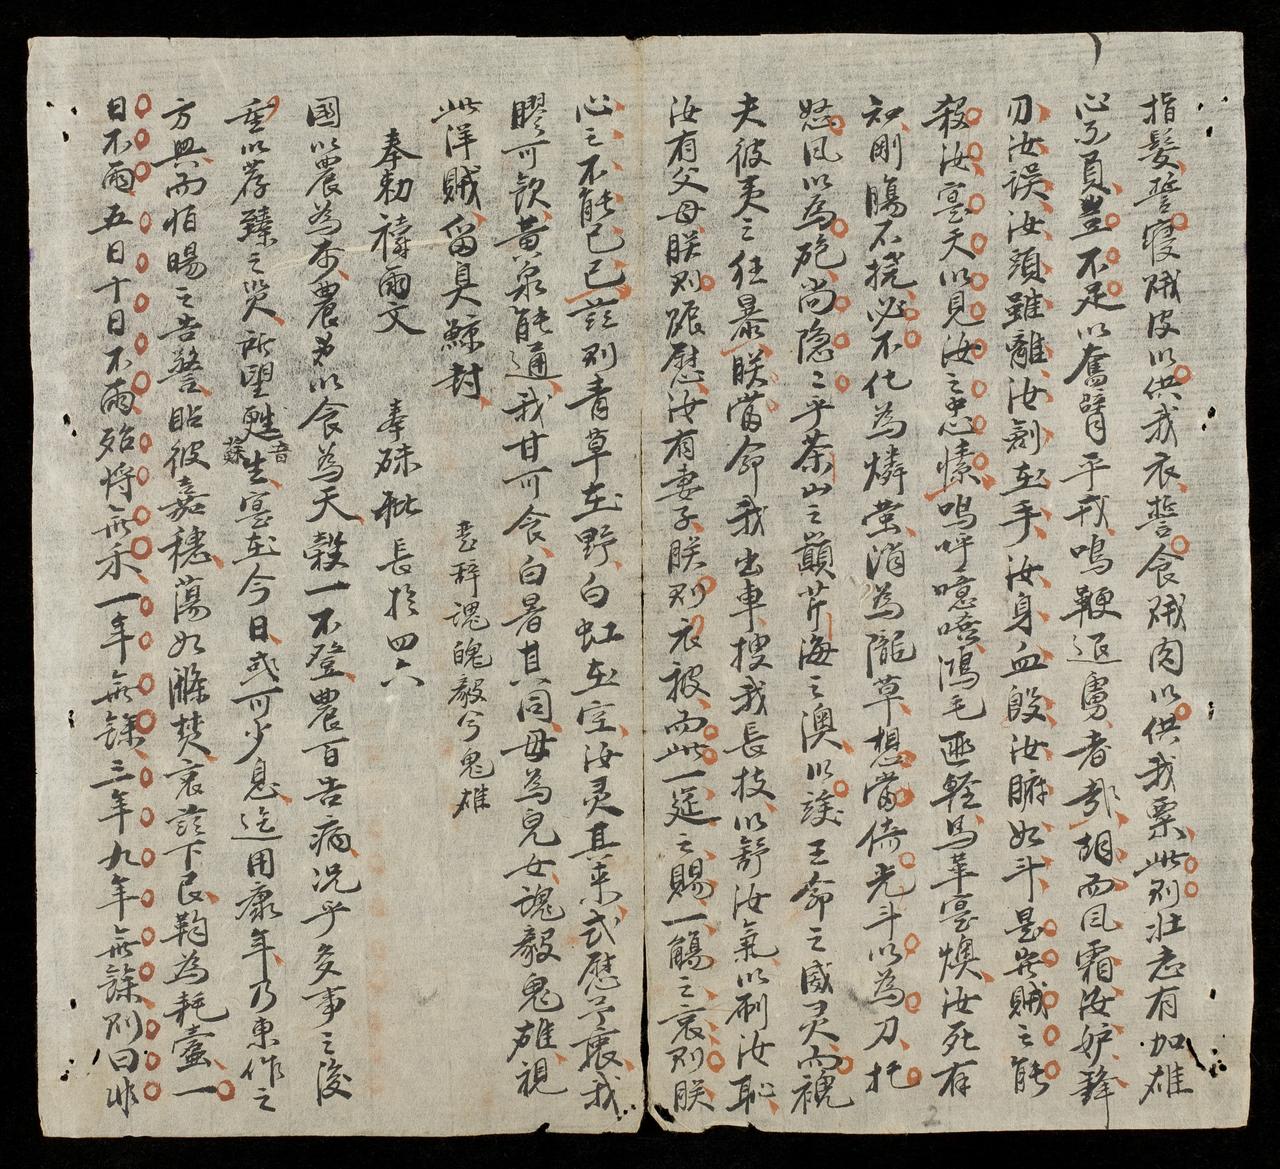 指髮誓寢賊皮以供我衣誓食賊肉以供我粟此則壯志有加雄
心可員豈不足以奮臂乎戎鳴鞭逐虜者哉胡而風霜汝妒鋒
刃汝誤汝頭雖離汝劍在手汝身血殷汝腑如斗是豈賊之能
殺汝寔天以見汝之忠愫嗚呼噫嘻鴻毛匪輕馬革寔燠汝死有
知剛腸不撓必不化為燐螢消為隴草想當倚光斗以為刀托
怒風以為砲尚隱二乎茶山之巔芹海之澳以護王命之威灵而褫
夫彼夷之狂暴朕當命我出車搜我長技以舒汝氣以刷汝恥
汝有父母朕則賑慰汝有妻子朕則衣被而此一筵之賜一觴之哀則朕
心之不能已已玆則青草在野白虹在空汝灵其來式慰予衷我
醪可飲黃泉能通我甘可食白晷其同毋為兒女魂毅鬼雄視
此洋賊留具鯨封
楚辞魂魄毅兮鬼雄
奉勅禱雨文　奉硃批長於四六
國以農為本農者以食為天穀一不登農百告病況乎多事之後
重以荐臻之災所望甦音蘇生寔在今日或可少息迄用康年乃東作之
方興而恒暘之告警眙彼嘉穗蕩如滌焚哀玆下民鞫為耗蠹一
日不雨五日十日不雨殆将無禾一年無餘三年九年無餘則曰非